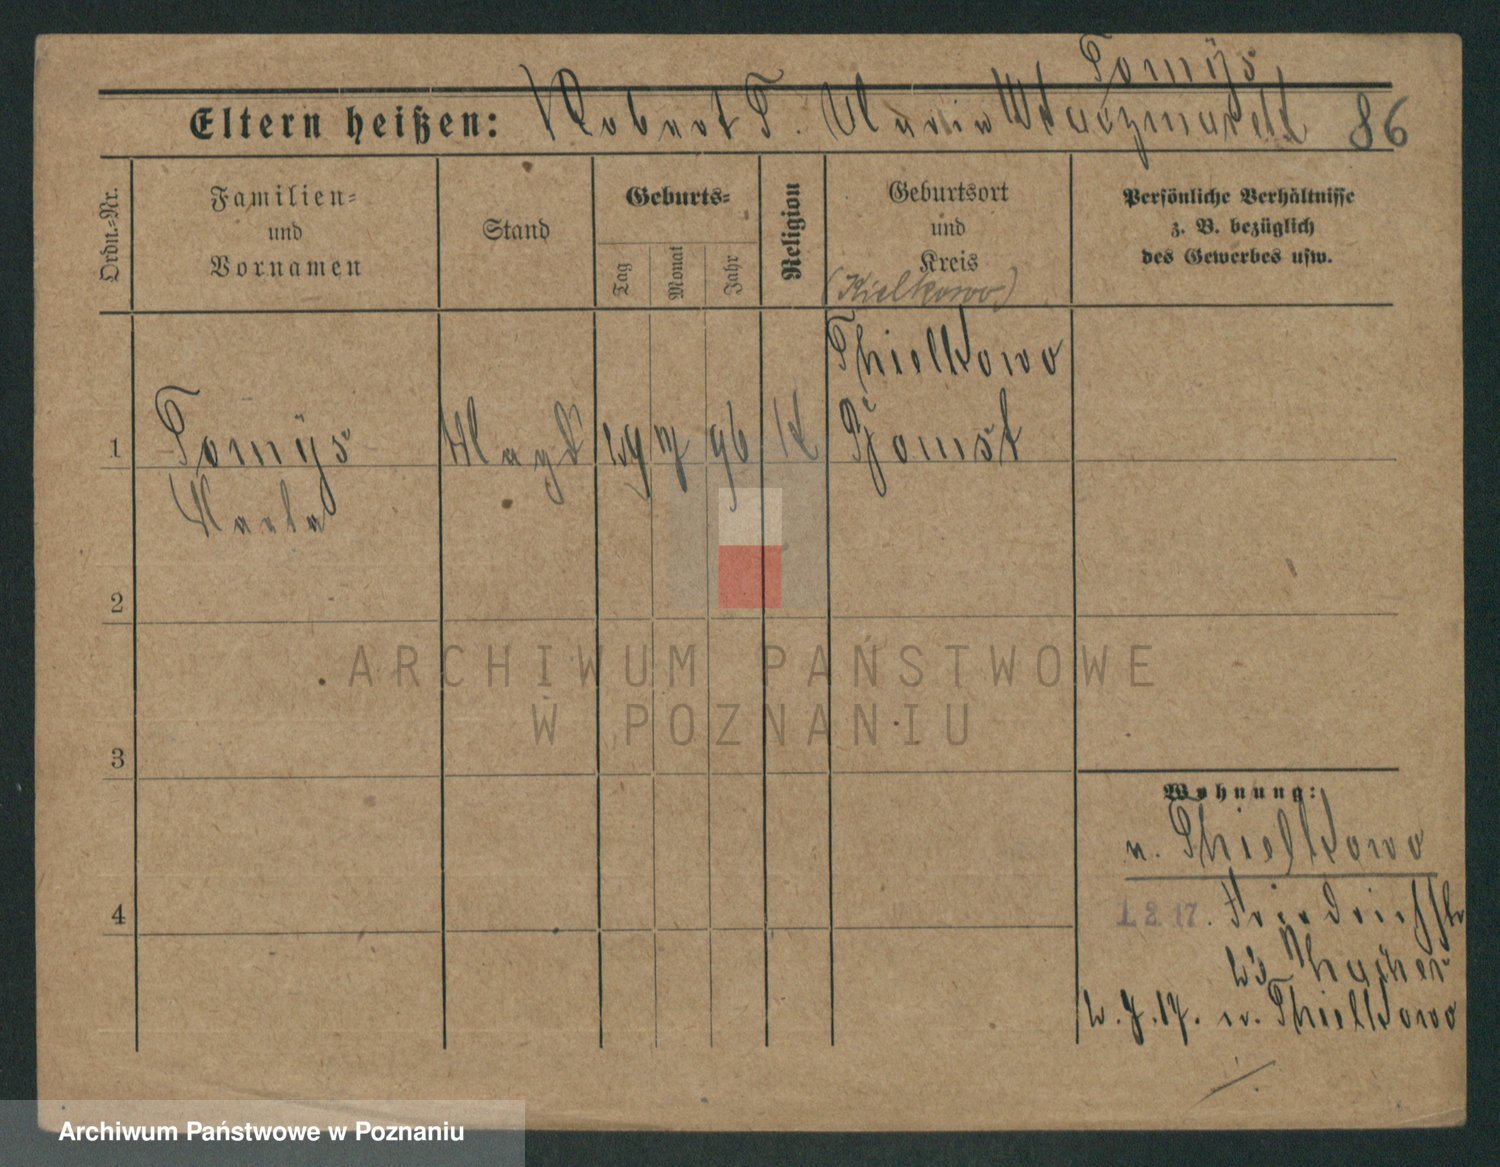 Tomys
Eltern heißen: Robert T. Maria Kaczmarek 86
Ordn.-Nr.
Familien-
und
Vornamen
Stand
Geburts-
Tag
Monat
Jahr
Religion
Geburtsort
und
Kreis
(Kielkowo)
Persönliche Verhältnisse
z. B. bezüglich
des Gewerbes usw.
Thielkowo
1 Tomys Magd 29 7 96 K Bomst
2
3
4
ARCHIWUM PAŃSTWOWE
W POZNANIU
Wohnung:
n. Thielkowo
1.2.17. Friedrichstr
n. Thielkowo
Archiwum Państwowe w Poznaniu